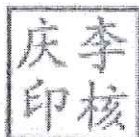 李核
庆印